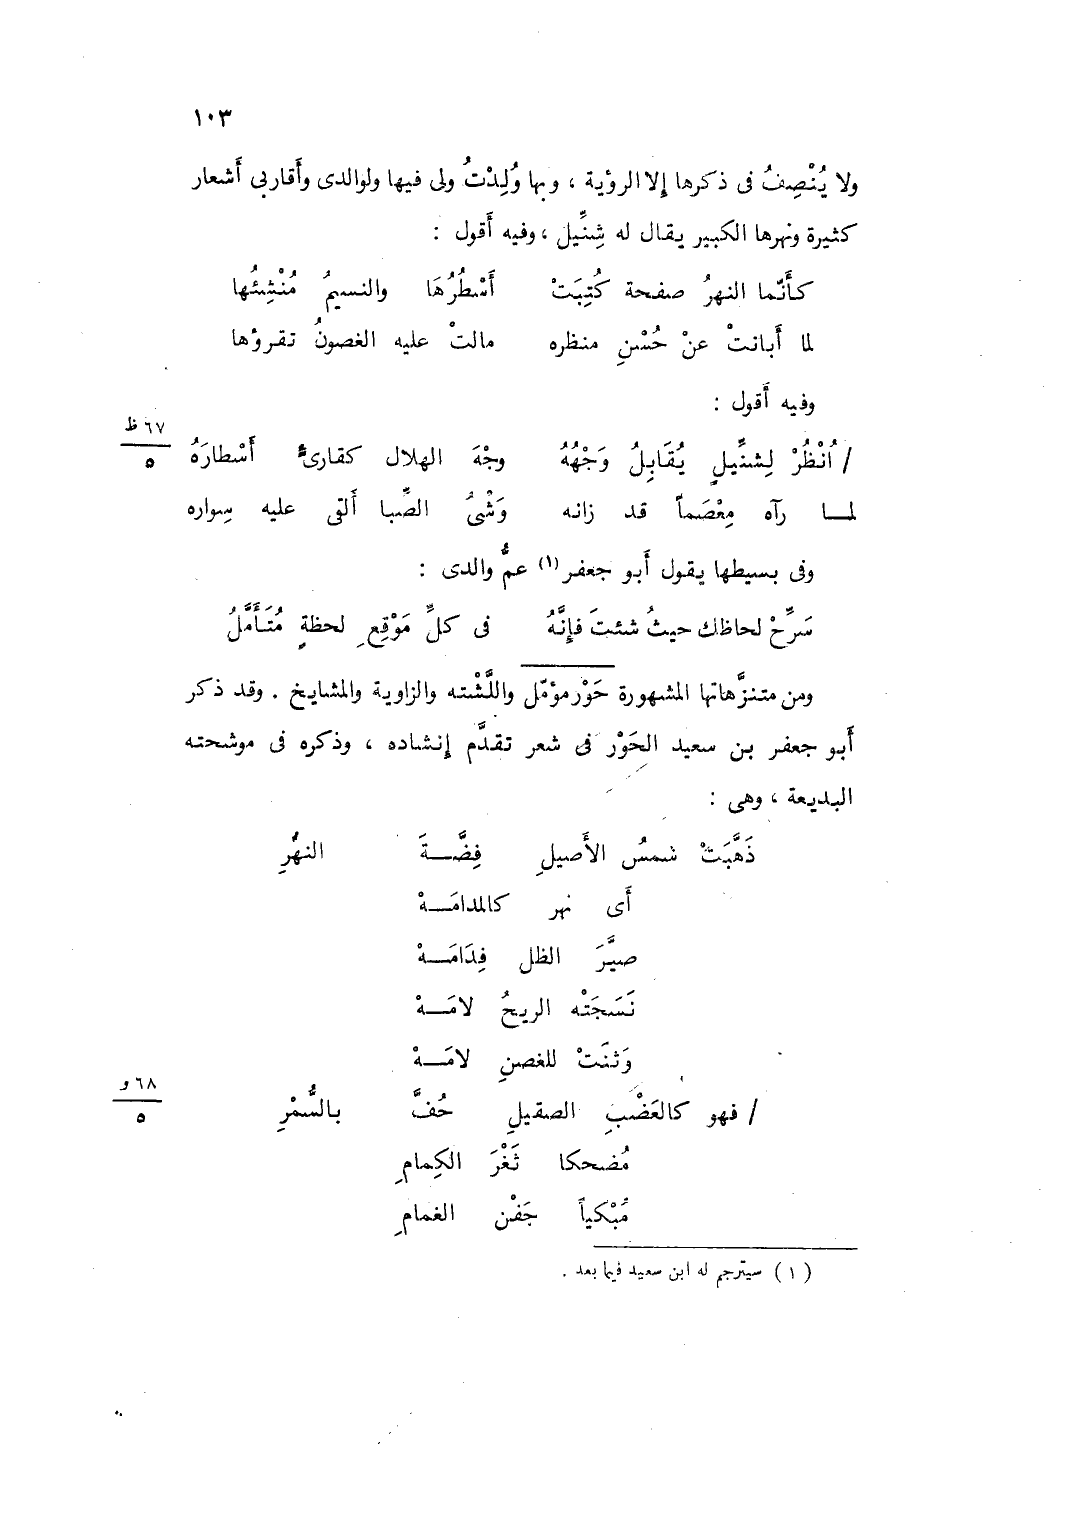 ١٠٣
ولا يُنْصِفُ فى ذكرها إلا الرؤية ، وبها وُلِدْتُ ولى فيها ولوالدى وأقاربى أَشعار
كثيرة ونهرها الكبير يقال له شِنِّيل ، وفيه أَقول :
كأَنّما النهرُ صفحة كُتِبَتْ أَسْطُرُهَا والنسيمُ مُنْشِئُها
لما أَبانتْ عنْ حُسْنِ منظره مالتْ عليه الغصونُ تقرؤها
وفيه أَقول :
٦٧ ظ
٥
/ اُنْظُرْ لِشنِّيلٍ يُقَابِلُ وَجْهُهُ وجْهَ الهلال كقارئ أَسْطارَهُ
لمـا رآه مِعْصَماً قد زانه وَشْىُ الصِّبا أَلقى عليه سِواره
وفى بسيطها يقول أَبو جعفر (١) عمُّ والدى :
سَرِّحْ لحاظك حيثُ شئتَ فإِنَّهُ فى كلِّ مَوْقِعِ لحظةٍ مُتَأَمَّلُ
ومن متنزَّهاتها المشهورة حَوْر مؤمّل واللَّشْته والزاوية والمشايخ . وقد ذكر
أَبو جعفر بن سعيد الحَوْر فى شعر تقدَّم إنشاده ، وذكره فى موشحته
البديعة ، وهى :
ذَهَّبَتْ شمسُ الأَصيلِ فِضَّـةَ النهْرِ
أَى نهر كالمدامَـهْ
صيَّرَ الظل فِدَامَـهْ
نَسَجَتْه الريحُ لامَـهْ
وَثنَتْ للغصنِ لامَـهْ
٦٨ و
٥
/ فهو كالعَضْبِ الصقيلِ حُفَّ بالسُّمْرِ
مُضحكا ثَغْرَ الكِمامِ
مُبْكياً جَفْن الغمامِ
(١) سيترجم له ابن سعيد فيما بعد .